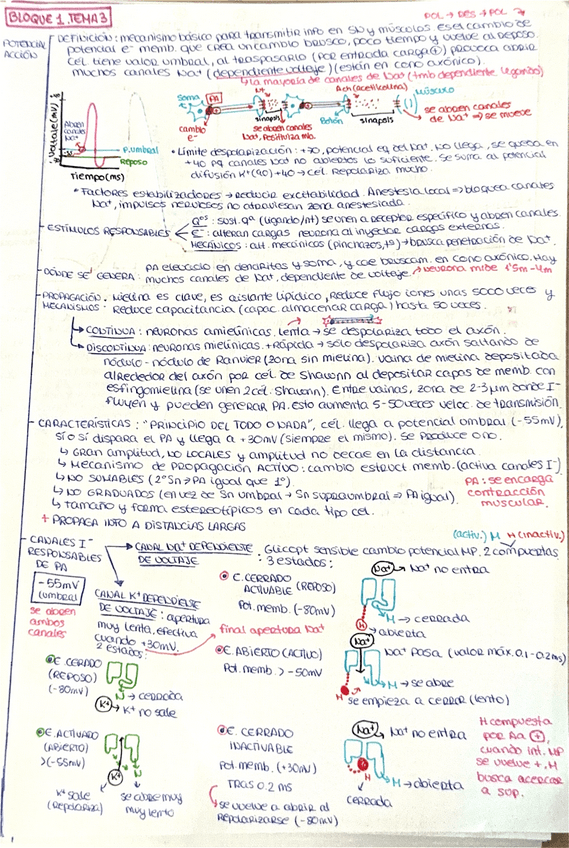 BLOQUE 1. TEMA 3
POL → DES → POL
POTENCIAL ACCIÓN
DEFINICIÓN: mecanismo básico para transmitir info en SN y músculos. es el cambio de
potencial e⁻ memb. que crea un cambio brusco, poco tiempo y vuelve al reposo.
Cél tiene valor umbral, al traspasarlo (por entrada carga ⊕) provoca abrir
muchos canales Na⁺ (dependiente voltaje) (están en cono axónico).
↳ la mayoría de canales de Na⁺ (tmb dependiente ligandos)
voltaje (mV)
Abren canales Na⁺
P. umbral
Reposo
tiempo (ms)
Soma
PA
Nt
Ach (acetilcolina)
Músculo
cambio e⁻
se abren canales Na⁺, Positiviza mb.
sinapsis
Botón
sinapsis
se abren canales de Na⁺ ⇒ se mueve
• Límite despolarización: +30, potencial eq del Na⁺. No llega, se queda en
+40 pq canales Na⁺ no abiertos lo suficiente. Se suma al potencial
difusión K⁺ (90) +40 → cél Repolariza mucho.
• Factores estabilizadores → Reducir excitabilidad. Anestesia local ⇒ bloquea canales
Na⁺, impulsos nerviosos no atraviesan zona anestesiada.
- ESTÍMULOS RESPONSABLES
Qᵒˢ: sust. qᵃ (ligando/nt) se unen a receptor específico y abren canales.
e⁻: alteran cargas neurona al inyectar cargas externas.
MECÁNICOS: alt. mecánicos (pinchazos, tª) + brusca penetración de Na⁺.
- DÓNDE SE GENERA:
PA elevado en dendritas y soma, y cae bruscam. en cono axónico. Hay
muchos canales de Na⁺, dependiente de voltaje.
neurona mide 1'5m-4m
- PROPAGACIÓN. MECANISMOS:
Mielina es clave, es aislante lipídico, Reduce flujo iones unas 5000 veces y
Reduce capacitancia (capac. almacenar carga) hasta 50 veces.
↳ CONTÍNUA: neuronas amielínicas. lenta → se despolariza todo el axón.
↳ DISCONTÍNUA: neuronas mielínicas. +Rápida → sólo despolariza axón saltando de
nódulo - nódulo de Ranvier (zona sin mielina). Vaina de mielina depositada
alrededor del axón por cél de Shawnn al depositar capas de memb con
esfingomielina (se unen 2 cél. Shawnn). Entre vainas, zona de 2-3μm donde I⁻
fluyen y pueden generar PA. esto aumenta 5-50 veces veloc. de transmisión.
- CARACTERÍSTICAS: "PRINCIPIO DEL TODO O NADA", cél. llega a potencial umbral (-55mv),
sí o sí dispara el PA y llega a +30mV (siempre el mismo). Se produce o no.
↳ Gran amplitud, NO LOCALES y amplitud no decae en la distancia.
↳ Mecanismo de propagación ACTIVO: cambio estruct memb. (activa canales I⁻)
↳ NO SUMABLES (2º Sn ⇒ PA igual que 1º)
↳ NO GRADUADOS (en vez de Sn umbral → Sn supraumbral ⇒ PA igual).
↳ Tamaño y forma estereotípicos en cada tipo cel.
+ PROPAGA INFO A DISTANCIAS LARGAS
PA: se encarga contracción muscular.
- CANALES I⁻ RESPONSABLES DE PA
-55mV (umbral)
se abren ambos canales
CANAL Na⁺ DEPENDIENTE DE VOLTAJE
: Glicopt sensible cambio potencial MP. 2 compuertas
(activ.) M H (inactiv.)
3 estados:
CANAL K⁺ DEPENDIENTE DE VOLTAJE: apertura
muy lenta, efectiva
cuando +30mV.
2 estados:
final apertura Na⁺
E. CERRADO (REPOSO) (-80mV)
→ cerrada
K⁺ → K⁺ no sale
E. ACTIVADO (ABIERTO) >(-55mV)
K⁺
K⁺ sale (Repolariza)
se abre muy muy lento
E. CERRADO ACTIVABLE (REPOSO)
Pot. memb. (-80mV)
Na⁺ → Na⁺ no entra
M → cerrada
H → abierta
E. ABIERTO (ACTIVO)
Pot. memb. > -50mV
Na⁺
Na⁺ pasa (valor máx. 0.1-0.2ms)
M → se abre
H se empieza a cerrar (lento)
E. CERRADO INACTIVABLE
Pot. memb. (+30mV)
TRAS 0.2 ms
→ se vuelve a abrir al
repolarizarse (-80mV)
Na⁺ → Na⁺ no entra
M → abierta
H
cerrada
H compuesta por Aa ⊕, cuando int. MP se vuelve +, H busca acercar a sup.